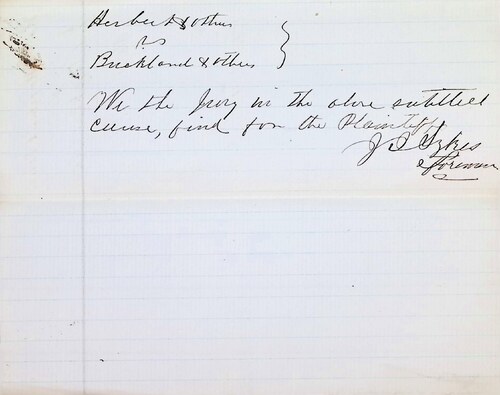 Herbert & others
vs
Buckland & others
We the Jury in the above entitled
cause, find for the Plaintiff
J S Sykes
Foreman